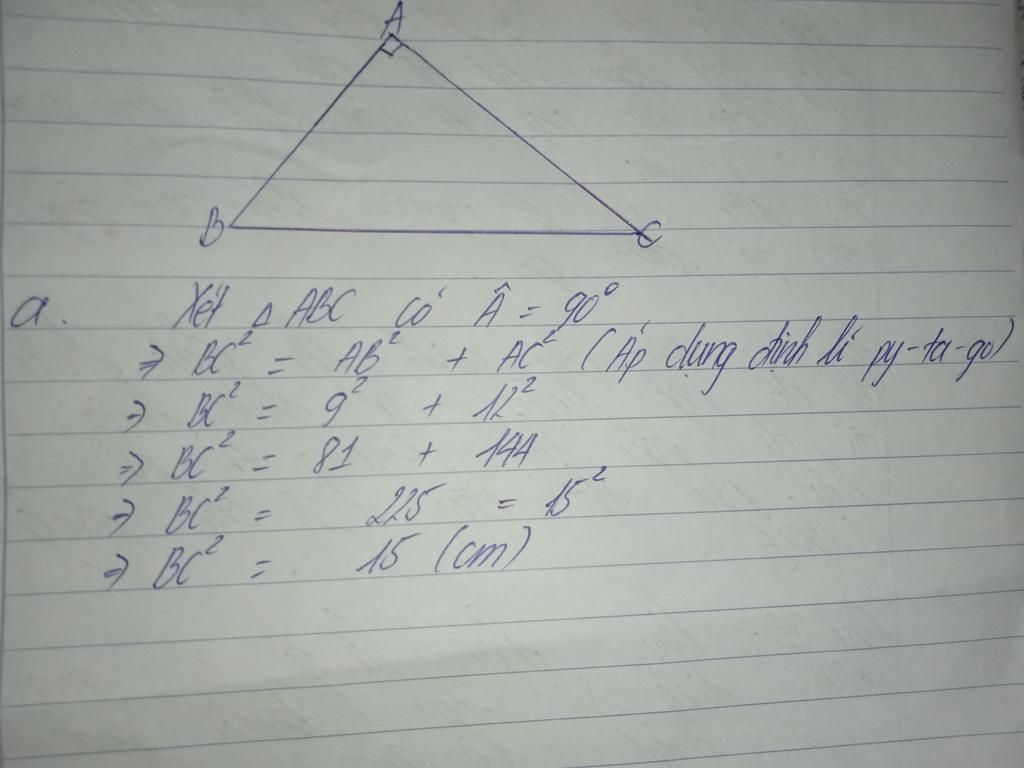 A
B
C
a. Xét △ ABC có Â = 90°
⇒ BC² = AB² + AC² (Áp dụng định lí py-ta-go)
⇒ BC² = 9² + 12²
⇒ BC² = 81 + 144
⇒ BC² = 225 = 15²
⇒ BC² = 15 (cm)